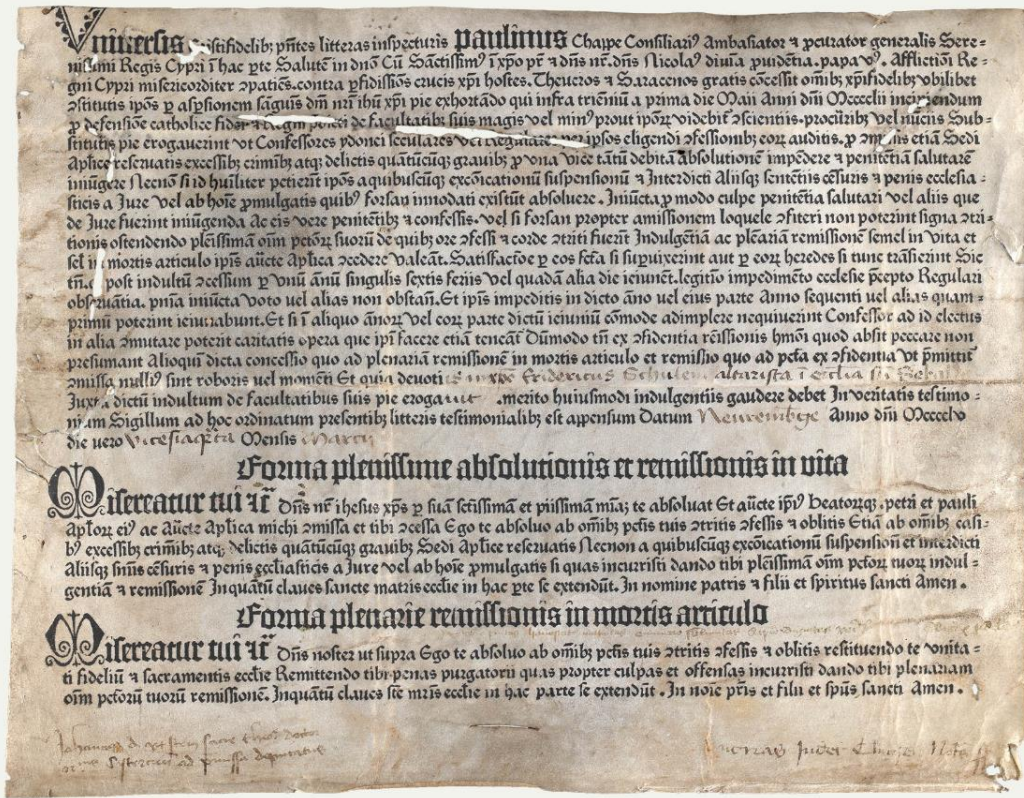 Uniuersis cristifidelibꝫ pn̄tes litteras inspecturis Paulinus Chappe Consiliariꝰ Ambasiator ⁊ ꝓcurator generalis Sere⸗
nissimi Regis Cypri ī hac ꝑte Salutē in dn̄o Cū Sanctissimꝰ ī xp̄o pr̄ ⁊ dn̄s nr̄. dn̄s Nicolaꝰ diuīa ꝓuidētia. papa vꝰ. Afflictioī Re⸗
gni Cypri misericorditer ꝯpatiēs. contra ꝑfidissios crucis xp̄i hostes. Theucros ⁊ Saracenos gratis cōcessit om̄ibꝫ xp̄ifidelibꝫ vbilibet
ꝯstitutis ip̄os ꝑ aspsionem sanguīs dn̄i nr̄i ihū xp̄i pie exhortādo qui infra trienniū a prima die Maii Anni dn̄i Mcccclii incipiendum
ꝓ defensiōe catholice fidei ⁊ Regni de facultatibꝫ suis magis vel minꝰ prout ip̄oꝝ videbit̄ ꝯscientiis. procuribꝫ vel nuciis Sub⸗
stitutis pie erogauerint vt Confessores ydonei seculares vel regulares per ipsos eligendi ꝯfessionibꝫ eoꝝ auditis. ꝓ etiā Sedi
Aplice reseruatis excessibꝫ crimībꝫ atqꝫ delictis quātūcūqꝫ grauibꝫ ꝓ vna vice tātū debitā absolutionē impēdere ⁊ penitētiā salutarē
iniūgere Necnō si id hūiliter petierīt ip̄os a quibuscūqꝫ excōicationū suspensionū ⁊ Interdicti Aliisqꝫ sentētiis cēsuris ⁊ penis ecclesia⸗
sticis a Jure vel ab hoīe ꝓmulgatis quibꝰ forsan innodati existūt absoluere. Iniūcta ꝓ modo culpe penitētia salutari vel aliis que
de Jure fuerint iniūgenda Ac eis vere penitētibꝫ ⁊ confessis. vel si forsan propter amissionem loquele ꝯfiteri non poterint signa ꝯtri⸗
tionis ostendendo plēissimā oīm pctōꝝ suorū de quibꝫ ore ꝯfessi ⁊ corde ꝯtriti fuerīt Indulgētiā ac plēariā remissionē semel in vita et
sel in mortis articulo ip̄is aūcte Aplica ꝯcedere valeāt. Satisfactōe ꝑ eos fcta si suꝑuixerint aut ꝑ eoꝝ heredes si tunc trāsierint Sic
tn̄ ꝙ post indultū ꝯcessum ꝑ vnū annū singulis sextis feriis vel quadā alia die ieiunēt. legitīo impedimēto ecclesie p̄cepto Regulari
obseruātia. pnīa iniūcta voto vel alias non obstan̄. Et ip̄is impeditis in dicto āno vel eius parte Anno sequenti vel alias quam⸗
primū poterint ieiunabunt. Et si ī aliquo annoꝝ vel eoꝝ parte dictū ieiuniū cōmode adimplere nequiuerint Confessor ad id electus
in alia ꝯmutare poterit caritatis opera que ip̄i facere etiā teneāt̄ Dūmodo tn̄ ex ꝯfidentia rēissionis hmōi quod absit peccare non
presumant Alioqui dicta concessio quo ad plenariā remissionē in mortis articulo et remissio quo ad pctā ex ꝯfidentia vt p̄mittit̄
ꝯmissa nulliꝰ sint roboris vel momēti Et quia deuoti Fridericus Schulem altarista
Juxta dictū indultum de facultatibus suis pie erogauit merito huiusmodi indulgentiis gaudere debet In veritatis testimo⸗
nium Sigillum ad hoc ordinatum presentibꝫ litteris testimonialibꝫ est appensum Datum Neurembge Anno dn̄i Mcccclv
die vero Mensis Marcii
Forma plenissime absolutionis et remissionis in vita
Misereatur tui ⁊c̄ Dn̄s nr̄ ihesus xp̄s ꝑ suā sctissimā et piissimā mīaꝫ te absoluat Et aūcte ip̄iꝰ beatorūqꝫ. petri et pauli
Aptōꝝ eiꝰ ac aūcte Aplica michi ꝯmissa et tibi ꝯcessa Ego te absoluo ab om̄ibꝫ pctīs tuis ꝯtritis ꝯfessis ⁊ oblitis Etiā ab om̄ibꝫ casi⸗
bꝰ excessibꝫ crimībꝫ atqꝫ delictis quātūcūqꝫ grauibꝫ Sedi Aplice reseruatis Necnon a quibuscūqꝫ excōicationū suspensionū et interdicti
Aliisqꝫ sniīs cēsuris ⁊ penis eccliasticis a Jure vel ab hoīe ꝓmulgatis si quas incurristi dando tibi plēissimā oīm pctōꝝ tuoꝝ indul⸗
gentiā ⁊ remissionē Inquātū claues sancte matris ecclie in hac ꝑte se extendūt. In nomine patris ⁊ filii et spiritus sancti Amen.
Forma plenarie remissionis in mortis articulo
Misereatur tui ⁊c̄ Dn̄s noster ut supra Ego te absoluo ab om̄ibꝫ pctīs tuis ꝯtritis ꝯfessis ⁊ oblitis restituendo te vnita⸗
ti fideliū ⁊ sacramentis ecclie Remittendo tibi penas purgatorii quas propter culpas et offensas incurristi dando tibi plenariam
oīm pctōrū tuorū remissionē. Inquātū claues sctē mr̄is ecclie in hac parte se extendūt. In noīe pr̄is et filii et spūs sancti Amen.
Johannes
ad deputatus